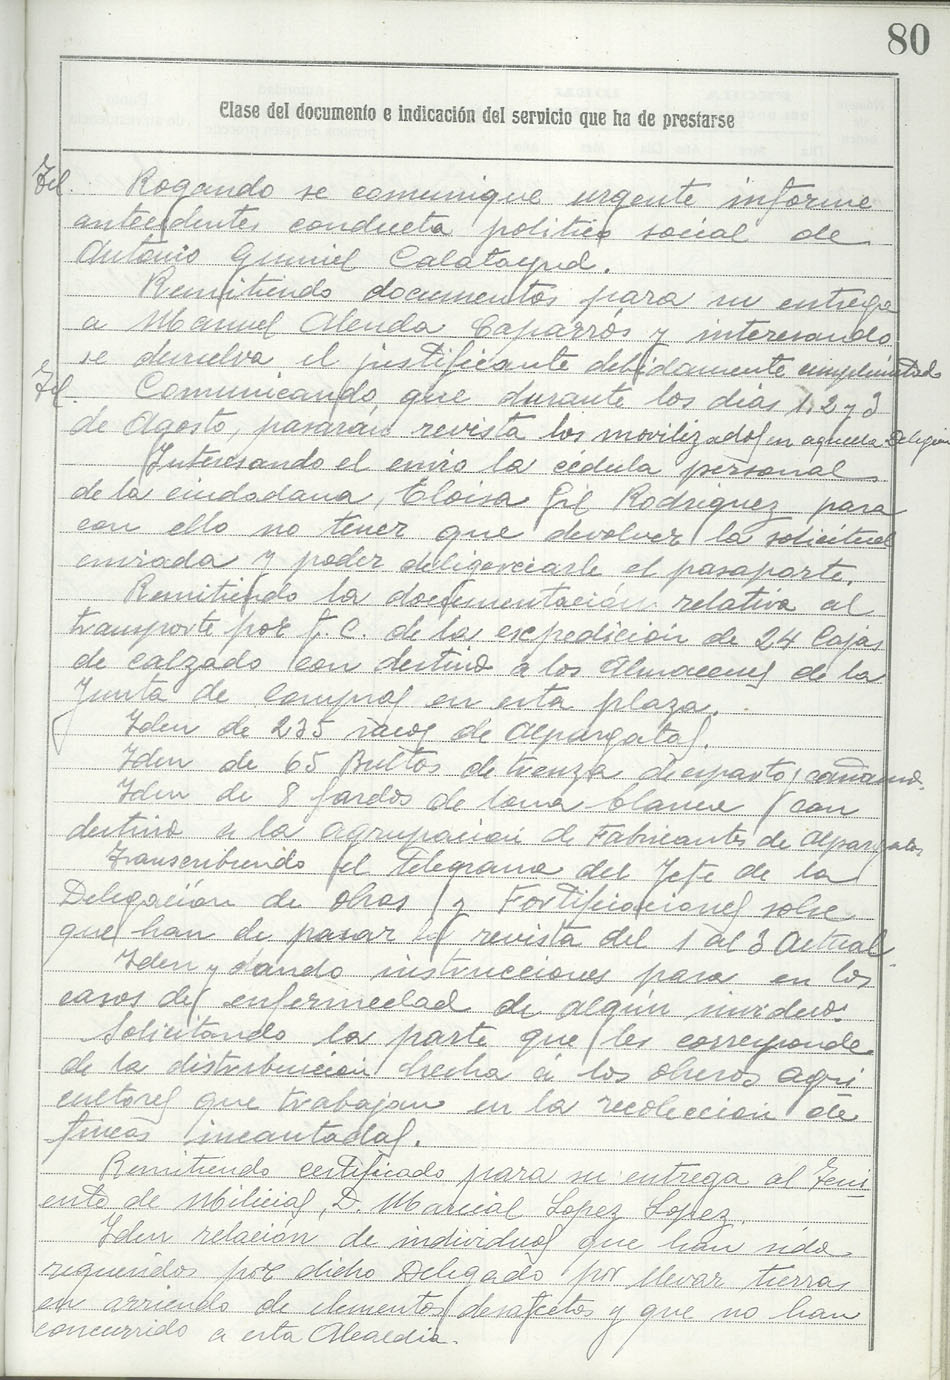 80
Clase del documento e indicación del servicio que ha de prestarse
Rogando se comunique urgente informe
antecedentes conducta politico social de
Antonio Gumiel Calatayud.
Remitiendo documentos para su entrega
a Manuel Alenda Caparrós y interesando
se devuelva el justificante debidamente cumplimentado
Comunicando, que durante los dias 1, 2 y 3
de Agosto, pasarán revista los movilizados en aquella Delegación
Interesando el envio la cédula personal
de la ciudadana, Eloisa Gil Rodriguez para
con ello no tener que devolver la solicitud
enviada y poder deligenciarle el pasaporte.
Remitiendo la documentación relativa al
transporte por F. C. de la expedición de 24 Cajas
de calzado con destino a los Almacenes de la
Junta de Compras en esta plaza.
Iden de 235 sacos de Alpargatas.
Iden de 65 Bultos de trenza de esparto y cañamo.
Iden de 8 fardos de lona blanca con
destino a la Agrupacion de Fabricantes de Alpargatas
Transcribiendo el telegrama del Jefe de la
Delegación de obras y Fortificaciones sobre
que han de pasar la revista del 1 al 3 Actual.
Iden y dando instrucciones para en los
casos de enfermedad de algún individuo.
Solicitando la parte que les corresponde
de la distribución hecha a los obreros agri
cultores que trabajan en la recolección de
fincas incautadas.
Remitiendo certificado para su entrega al Teni
ente de Milicias, D. Marcial Lopez Lopez.
Iden relación de individuos que han sido
requeridos por dicho Delegado por llevar tierras
en arriendo de elementos desafectos y que no han
concurrido a esta Alcaldia.